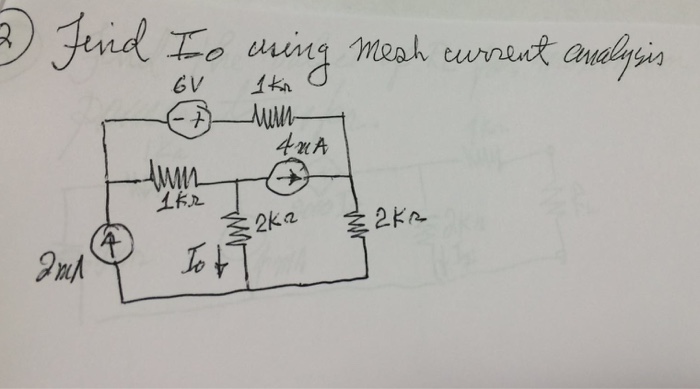 2) Find Io using mesh current analysis
6V 1kΩ
- +
4mA
1kΩ
2kΩ 2kΩ
2mA Io